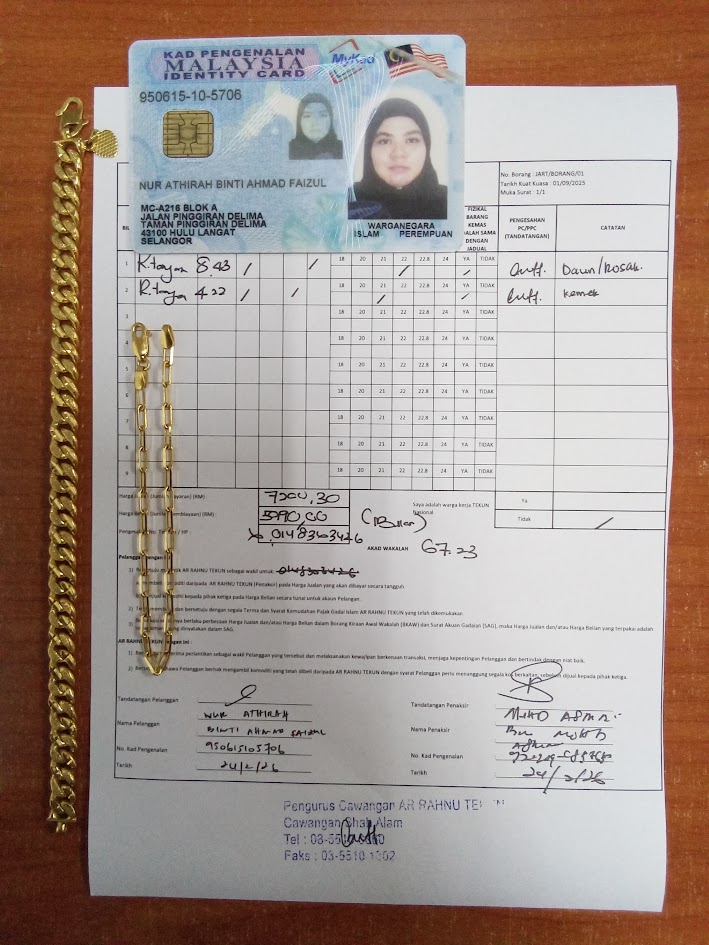 KAD PENGENALAN
MALAYSIA
IDENTITY CARD
MyKad
950615-10-5706
NUR ATHIRAH BINTI AHMAD FAIZUL
MC-A216 BLOK A
JALAN PINGGIRAN DELIMA
TAMAN PINGGIRAN DELIMA
43100 HULU LANGAT
SELANGOR
WARGANEGARA
ISLAM PEREMPUAN
No. Borang : JART/BORANG/01
Tarikh Kuat Kuasa : 01/09/2025
Muka Surat : 1/1
FIZIKAL BARANG KEMAS DENGAN JADUAL
PENGESAHAN PC/PPC (TANDATANGAN)
CATATAN
1 K.tayar 8.43 / / 18 20 21 22 22.8 24 YA TIDAK
2 R.taya 4.22 / / 18 20 21 22 22.8 24 YA TIDAK kemek
3 18 20 21 22 22.8 24 YA TIDAK
4 18 20 21 22 22.8 24 YA TIDAK
5 18 20 21 22 22.8 24 YA TIDAK
6 18 20 21 22 22.8 24 YA TIDAK
7 18 20 21 22 22.8 24 YA TIDAK
8 18 20 21 22 22.8 24 YA TIDAK
9 18 20 21 22 22.8 24 YA TIDAK
Harga 7200.30
Saya adalah warga kerja TEKUN Nasional
Ya
Tidak /
Harga 5090.00
0148363426
AKAD WAKALAH 67.23
Pelanggan
AR RAHNU TEKUN sebagai wakil untuk:
daripada AR RAHNU TEKUN (Penakur) pada Harga Jualan yang akan dibayar secara tangguh.
kepada pihak ketiga pada Harga Belian secara tunai untuk akaun Pelangan.
bersetuju dengan segala Terma dan Syarat Kemudahan Pajak Gadai Islam AR RAHNU TEKUN yang telah dikemukakan.
berlaku perbezaan Harga Jualan dan/atau Harga Belian dalam Borang Kiraan Awal Wakalah (BKAW) dan Surat Akuan Gadaian (SAG), maka Harga Jualan dan/atau Harga Belian yang terpakai adalah
yang dinyatakan dalam SAG.
AR RAHNU TEKUN ini :
1) perlantikan sebagai wakil Pelanggan yang tersebut dan melaksanakan kewajipan berkenaan transaksi, menjaga kepentingan Pelanggan dan bertindak dengan niat baik.
2) Pelanggan berhak mengambil komoditi yang telah dibeli daripada AR RAHNU TEKUN dengan syarat Pelanggan perlu menanggung segala kos berkaitan, sebelum dijual kepada pihak ketiga.
Tandatangan Pelanggan
Tandatangan Penaksir
Nama Pelanggan NUR ATHIRAH
BINTI AHMAD FAIZUL
Nama Penaksir
No. Kad Pengenalan 950615105706
No. Kad Pengenalan
Tarikh 24/2/26
Tarikh 24/2/26
Pengurus Cawangan AR RAHNU
Cawangan Shah Alam
Tel : 03-5510
Faks : 03-5510